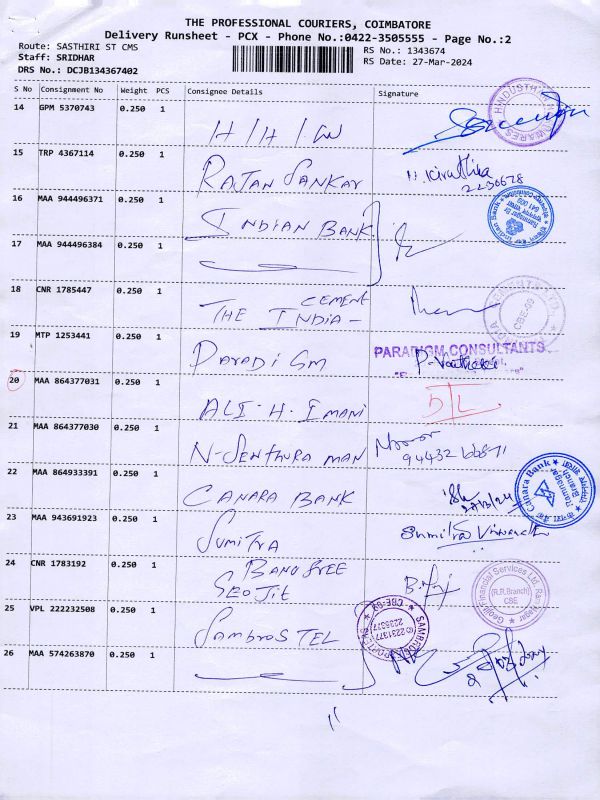 THE PROFESSIONAL COURIERS, COIMBATORE
Delivery Runsheet - PCX - Phone No.:0422-3505555 - Page No.:2
Route: SASTHIRI ST CMS
RS No.: 1343674
Staff: SRIDHAR
RS Date: 27-Mar-2024
DRS No.: DCJB134367402
S No Consignment No Weight PCS Consignee Details Signature
14 GPM 5370743 0.250 1
H/H/W
15 TRP 4367114 0.250 1
RAJAN SANKAR
2230678
16 MAA 944496371 0.250 1
INDIAN BANK
17 MAA 944496384 0.250 1
18 CNR 1785447 0.250 1
CEMENT
THE INDIA -
CBE-09
19 MTP 1253441 0.250 1
PARADIGM CONSULTANTS
ParadiGm
20 MAA 864377031 0.250 1
ALI-H-IMANI
DL
21 MAA 864377030 0.250 1
N-SENTHURA MAN
22 MAA 864933391 0.250 1
CANARA BANK
Canara Bank
Ramnagar
Branch
23 MAA 943691923 0.250 1
SUMITRA
24 CNR 1783192 0.250 1
Geojit Financial Services Ltd. Ram Nagar
(R.R.Branch)
CBE
25 VPL 222232508 0.250 1
SambroS TEL
CBE-09
2231377
2235377
26 MAA 574263870 0.250 1